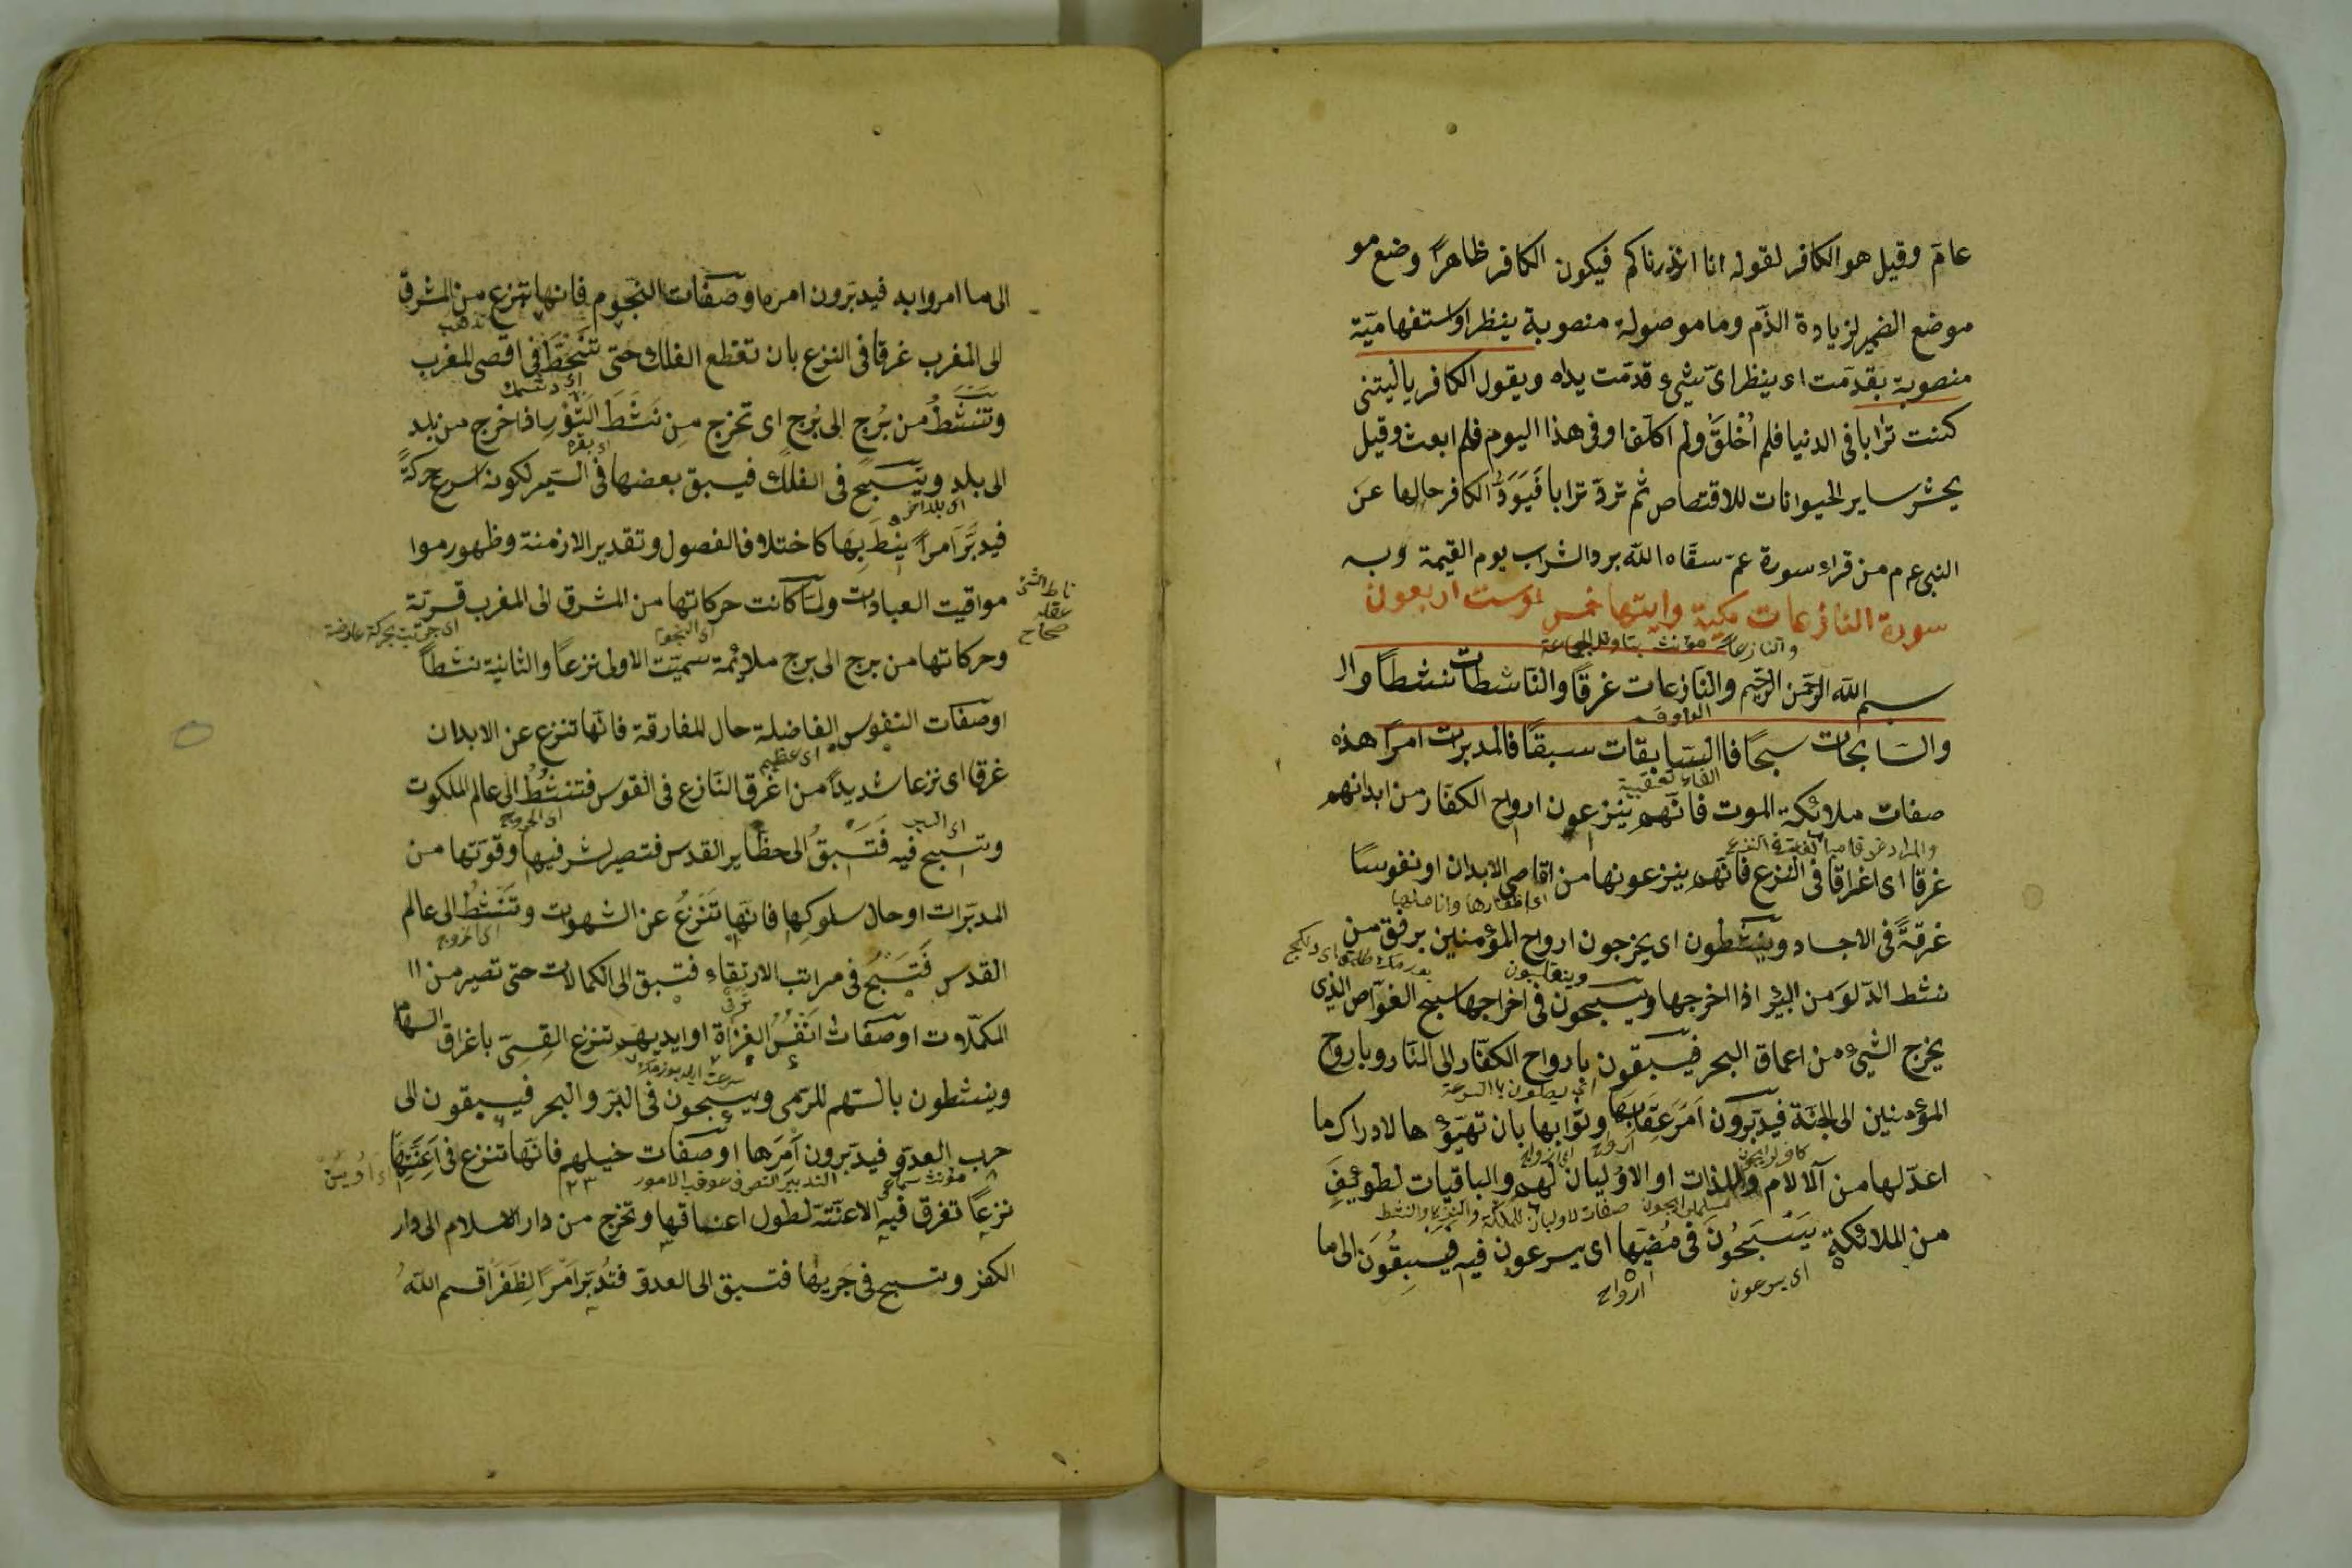 عام وقيل هو الكافر لقوله انا انذرناكم فيكون الكافر ظاهرا وضع مو
موضع الضمير لزيادة الذم وما موصولة منصوبة بينظر او استفهامية
منصوبة بقدمت اى ينظر اى شىء قدمت يداه ويقول الكافر ياليتنى
كنت ترابا فى الدنيا فلم اُخْلَقْ ولم اكلف او فى هذا اليوم فلم ابعث وقيل
يحشر ساير الحيوانات للاقتصاص ثم ترد ترابا فَيَوَدُّ الكافر حالها عن
النبى ع م من قراء سورة عم سقاه الله برد الشراب يوم القيمة وبه
سورة النازعات مكية وايتها خمس او ست اربعون
والنازعات مؤنث بتاويل الجماعة
بسم الله الرحمن الرحيم والنازعات غرقا والناشطات نشطا وال
والسابحات سبحا فالسابقات سبقا فالمدبرات امرا هذه
الفاء تعقيبية
صفات ملائكة الموت فانهم ينزعون ارواح الكفار من ابدانهم
غرقا اى اغراقا فى النزع فانهم ينزعونها من اقاصى الابدان او نفوسا
اى اظفارها واناملها
غرقةً فى الاجساد وينشطون اى يخرجون ارواح المؤمنين برفق من
نشط الدلو من البئر اذا اخرجها ويسبحون فى اخراجها سبح الغواص الذى
يخرج الشىء من اعماق البحر فيسبقون بارواح الكفار الى النار وبارواح
اى يصلون بالسرعة
المؤمنين الى الجنة فيدبرون اَمْرَ عِقَابِهَا وثوابها بان تهيؤها لادراك ما
ارواح
اعد لها من الآلام واللذات او الاوليان لهم والباقيات لطوئيف
من الملائكة يَسْبَحُونَ فى مُضِيِّها اى يسرعون فيه فَيَسْبِقُونَ الى ما
اى يسرعون
ارواح
الى ما امروا به فيدبرون امره او صفات النجوم فانها تنزع من المشرق
تذهب
الى المغرب غرقا فى النزع بان تقطع الفلك حتى تَنْحَطَّ فى اقصى المغرب
وتَنْشُطُ من بُرْج الى بُرْج اى تخرج مِن نَشَطَ الثَّوْر اذا خرج من بلد
اى بقره
الى بلد ويَسْبَح فى الفلك فيسبق بعضها فى السير لكونه اسرع حركةً
اى بلد اخر
فيدبّر امرا نِيطَ بِهَا كاختلاف الفصول وتقدير الازمنة وظهور موا
ناط الشئ
علقه
صحاح
مواقيت العبادات ولما كانت حركاتها من المشرق الى المغرب قسرية
اى النجوم
وحركاتها من برج الى برج ملائمة سميت الاولى نزعا والثانية نشطا
او صفات النفوس الفاضلة حال المفارقة فانها تنزع عن الابدان
غرقا اى نزعا شديدا من اغرق النازع فى القوس فتنشُطُ الى عالم الملكوت
اى الخروج
وتسبح فيه فَتَسْبِقُ الى حظاير القدس فتصير لشرفها وقوتها من
المدبرات او حال سلوكها فانها تَنْزِعُ عن الشهوات وتَنْشُطُ الى عالم
اى خروج
القدس فَتَسْبَحُ فى مراتب الارتقاء فتسبق الى الكمالات حتى تصير من ال
المكملات او صفات اَنْفُسِ الغزاة او ايديهم تنزع القسى باغراق السهام
وينشطون بالسهم للرمى ويسبحون فى البر والبحر فيسبقون الى
حرب العدو فيدبرون اَمْرَها او صفات خيلهم فانها تنزع فى اَعِنَّتِها
مؤنث سماعى
نزعًا تغرق فيه الاعنّة لطول اعناقها وتخرج من دار الاسلام الى دار
الكفر وتسبح فى جريها فتسبق الى العدو فتُدَبِّر امْرَ الظَفَرِ اقسم الله